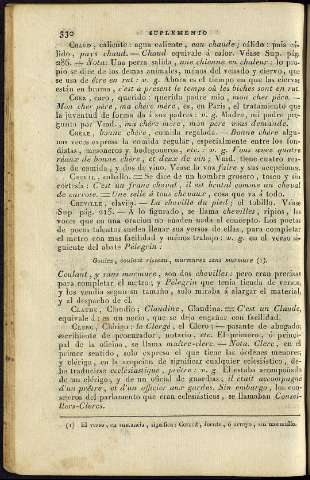 330 SUPLEMENTO
CHAUD, caliente: agua caliente, eau chaude; cálido: pais cá-
lido, pays chaud. — Chaud equivale á calor. Véase Sup. pág.
286. — Nota: Una perra salida, une chienne en chaleur: lo pro-
pio se dice de los demas animales, ménos del venado y ciervo, que
se usa de être en rut: v. g. Ahora es el tiempo en que las ciervas
están en brama, c'est a present le temps où les biches sont en rut.
CHER, caro, querido: querido padre mio, mon cher père. —
Mon cher père, ma chère mère, es, en Paris, el tratamiento que
la juventud de forma da á sus padres: v. g. Madre, mi padre pre-
gunta por Vmd., ma chère mère, mon père vous demande.
CHÈRE, bonne chère, comida regalada. — Bonne chère algu-
nas veces expresa la comida regular, especialmente entre los fon-
distas, mesoneros y bodegoneros, etc.: v. g. Vous avez quatre
réaux de bonne chère, et deux de vin; Vmd. tiene quatro rea-
les de comida, y dos de vino. Véase la voz faire y sus acepciones.
CHEVAL, caballo. — Se dice de un hombre grosero, tosco y sin
cortesía: C'est un franc cheval, il est brutal comme un cheval
de carrosse. — Une selle à tous chevaux, cosa que va á todo.
CHEVILLE, clavija. — La cheville du pied; el tobillo. Véase
Sup. pág. 215. — A lo figurado, se llama chevilles, ripios, las
voces que en una oracion no suelen al concepto. Los poetas
de pocos talentos suelen llenar sus versos de ellas, para completar
el metro con mas facilidad y ménos trabajo: v. g. en el verso si-
guiente del abate Pelegrin:
Coulez, coulant ruisseau, murmurez sans murmure (1).
Coulant, y sans murmure, son dos chevilles; pero eran precisas
para completar el metro; y Pelegrin que tenia tienda de versos,
y los vendia segun su tamaño, solo miraba á alargar el material,
y el despacho de él.
CLAUDE, Claudio; Claudine, Claudina. — C'est un Claude,
equivale á: es un necio, que se deja engañar con facilidad.
CLERC, Clérigo: le Clergé, el Clero; — pasante de abogado;
escribiente de procurador, notario, etc. El primero, ó princi-
pal de la oficina, se llama maître-clerc. — Nota. Clerc, en el
primer sentido, solo expresa el que tiene las órdenes menores;
y clérigo, en la acepcion de significar cualquier eclesiástico, de-
be traducirse ecclésiastique, prêtre: v. g. El estaba acompañado
de un clérigo, y de un oficial de guardias, il était accompagné
d'un prêtre, et d'un officier aux gardes. Sin embargo, los con-
sejeros del parlamento que eran eclesiásticos, se llamaban Consei-
llers-Clercs.
(1) El verso, en sustancia, significa: Corred, fuente, ó arroyo, sin murmullo.